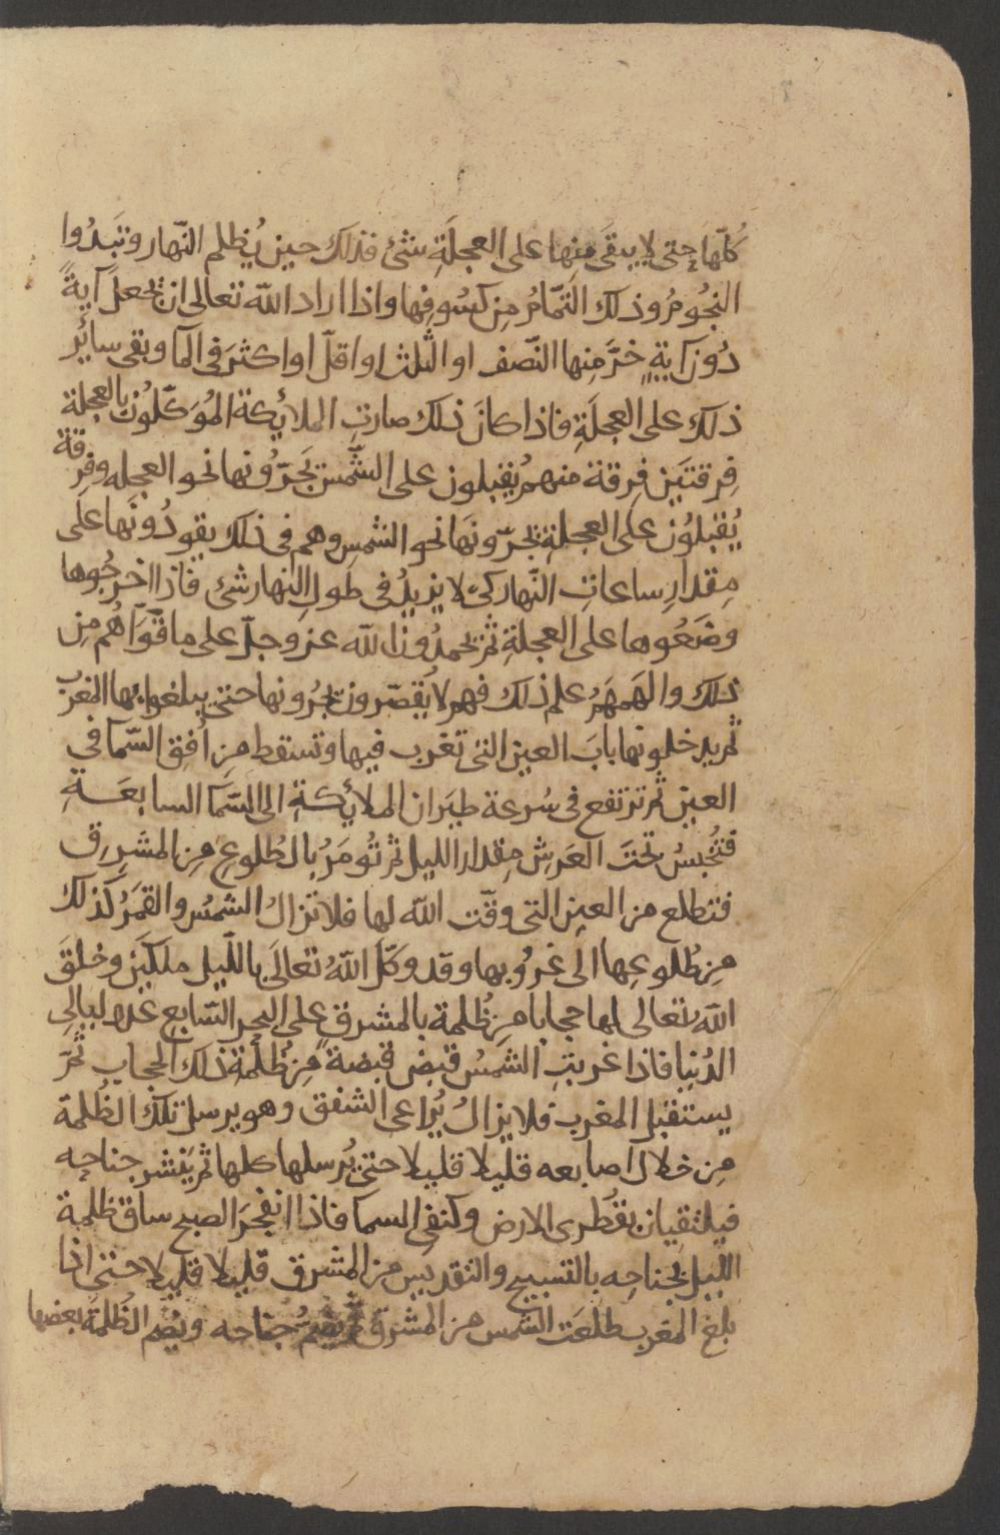 كلّها حتى لا يبقى منها على العجلة شئ فذلك حين يُظلم النّهار وتبدُوا
النجُومُ وذلك التمّامُ من كسُوفها واذا اراد الله تعالى ان يجعل آيةً
دُون آيةٍ خرَّ مِنها النّصف او الثّلث او اقلّ او اكثرَ فى الما وبقى سايُر
ذلك على العجلَةِ فاذا كانَ ذلك صارتِ الملائِكة المُوَكّلُون بالعجلة
فِرقتَين فِرقة منهم يُقبلون على الشّمس يَجرّونها نحو العجله وفِرقة
يُقبلوُن على العجلةِ يجرّونَها نحو الشمس وهم فى ذلك يقودُونَها على
مِقدارِ ساعاتِ النّهار كى لا يزيدُ فى طولِ النهار شئ فاذا اخرجُوها
وضَعُوها على العجلةِ ثم يحمدُون الله عز وجلّ على ما قوّاهُم مِن
ذلك والهَمَهُم علم ذلك فهم لا يُقصّرون يجُرونها حتى يبلغوا بها المغرب
ثم يدخلونها بابَ العين التى تغرب فيها وتسقط مِن افق السّما فى
العين ثم ترتفع فى سُرعة طيَران الملائكةِ الى السّمَا السابعَةِ
فتُحبسُ تحتَ العَرشِ مِقدار الليل ثم تُومَرُ بالطُلوعِ مِن المشرِق
فتطلع من العين التى وقّت الله لها فلا تزالُ الشمسُ والقمَرُ كذلك
مِن طُلوعِها الى غروُبها وقد وكّلَ اللهُ تعالَى باللّيل ملَكَين وخلقَ
الله تعالى لها حجابا مِن ظُلمة بالمشرقِ على البحر السّابع عدد ليالى
الدُنيا فاذا غربتِ الشمسُ قبض قبضة مِن ظُلمةِ ذلك الحجاب ثمّ
يستقبل المغرب فلا يزالُ يُراعى الشفق وهو يرسل تلك الظُلمة
مِن خلال اصابعه قليلا قليلا حتى يُرسلها كلها ثم يَنشر جناحِه
فيلتقيان بقُطرى الارض وكنفى السما فاذا انفجَرَ الصبح ساق ظلمة
الليل بجناحِه بالتسبيح والتقديس من المشرق قليلا قليلا حتى اذا
بلغ المغرب طلعَت الشمس من المشرق ثم يضُم جناحه ويضم الظُلمَة بعضها